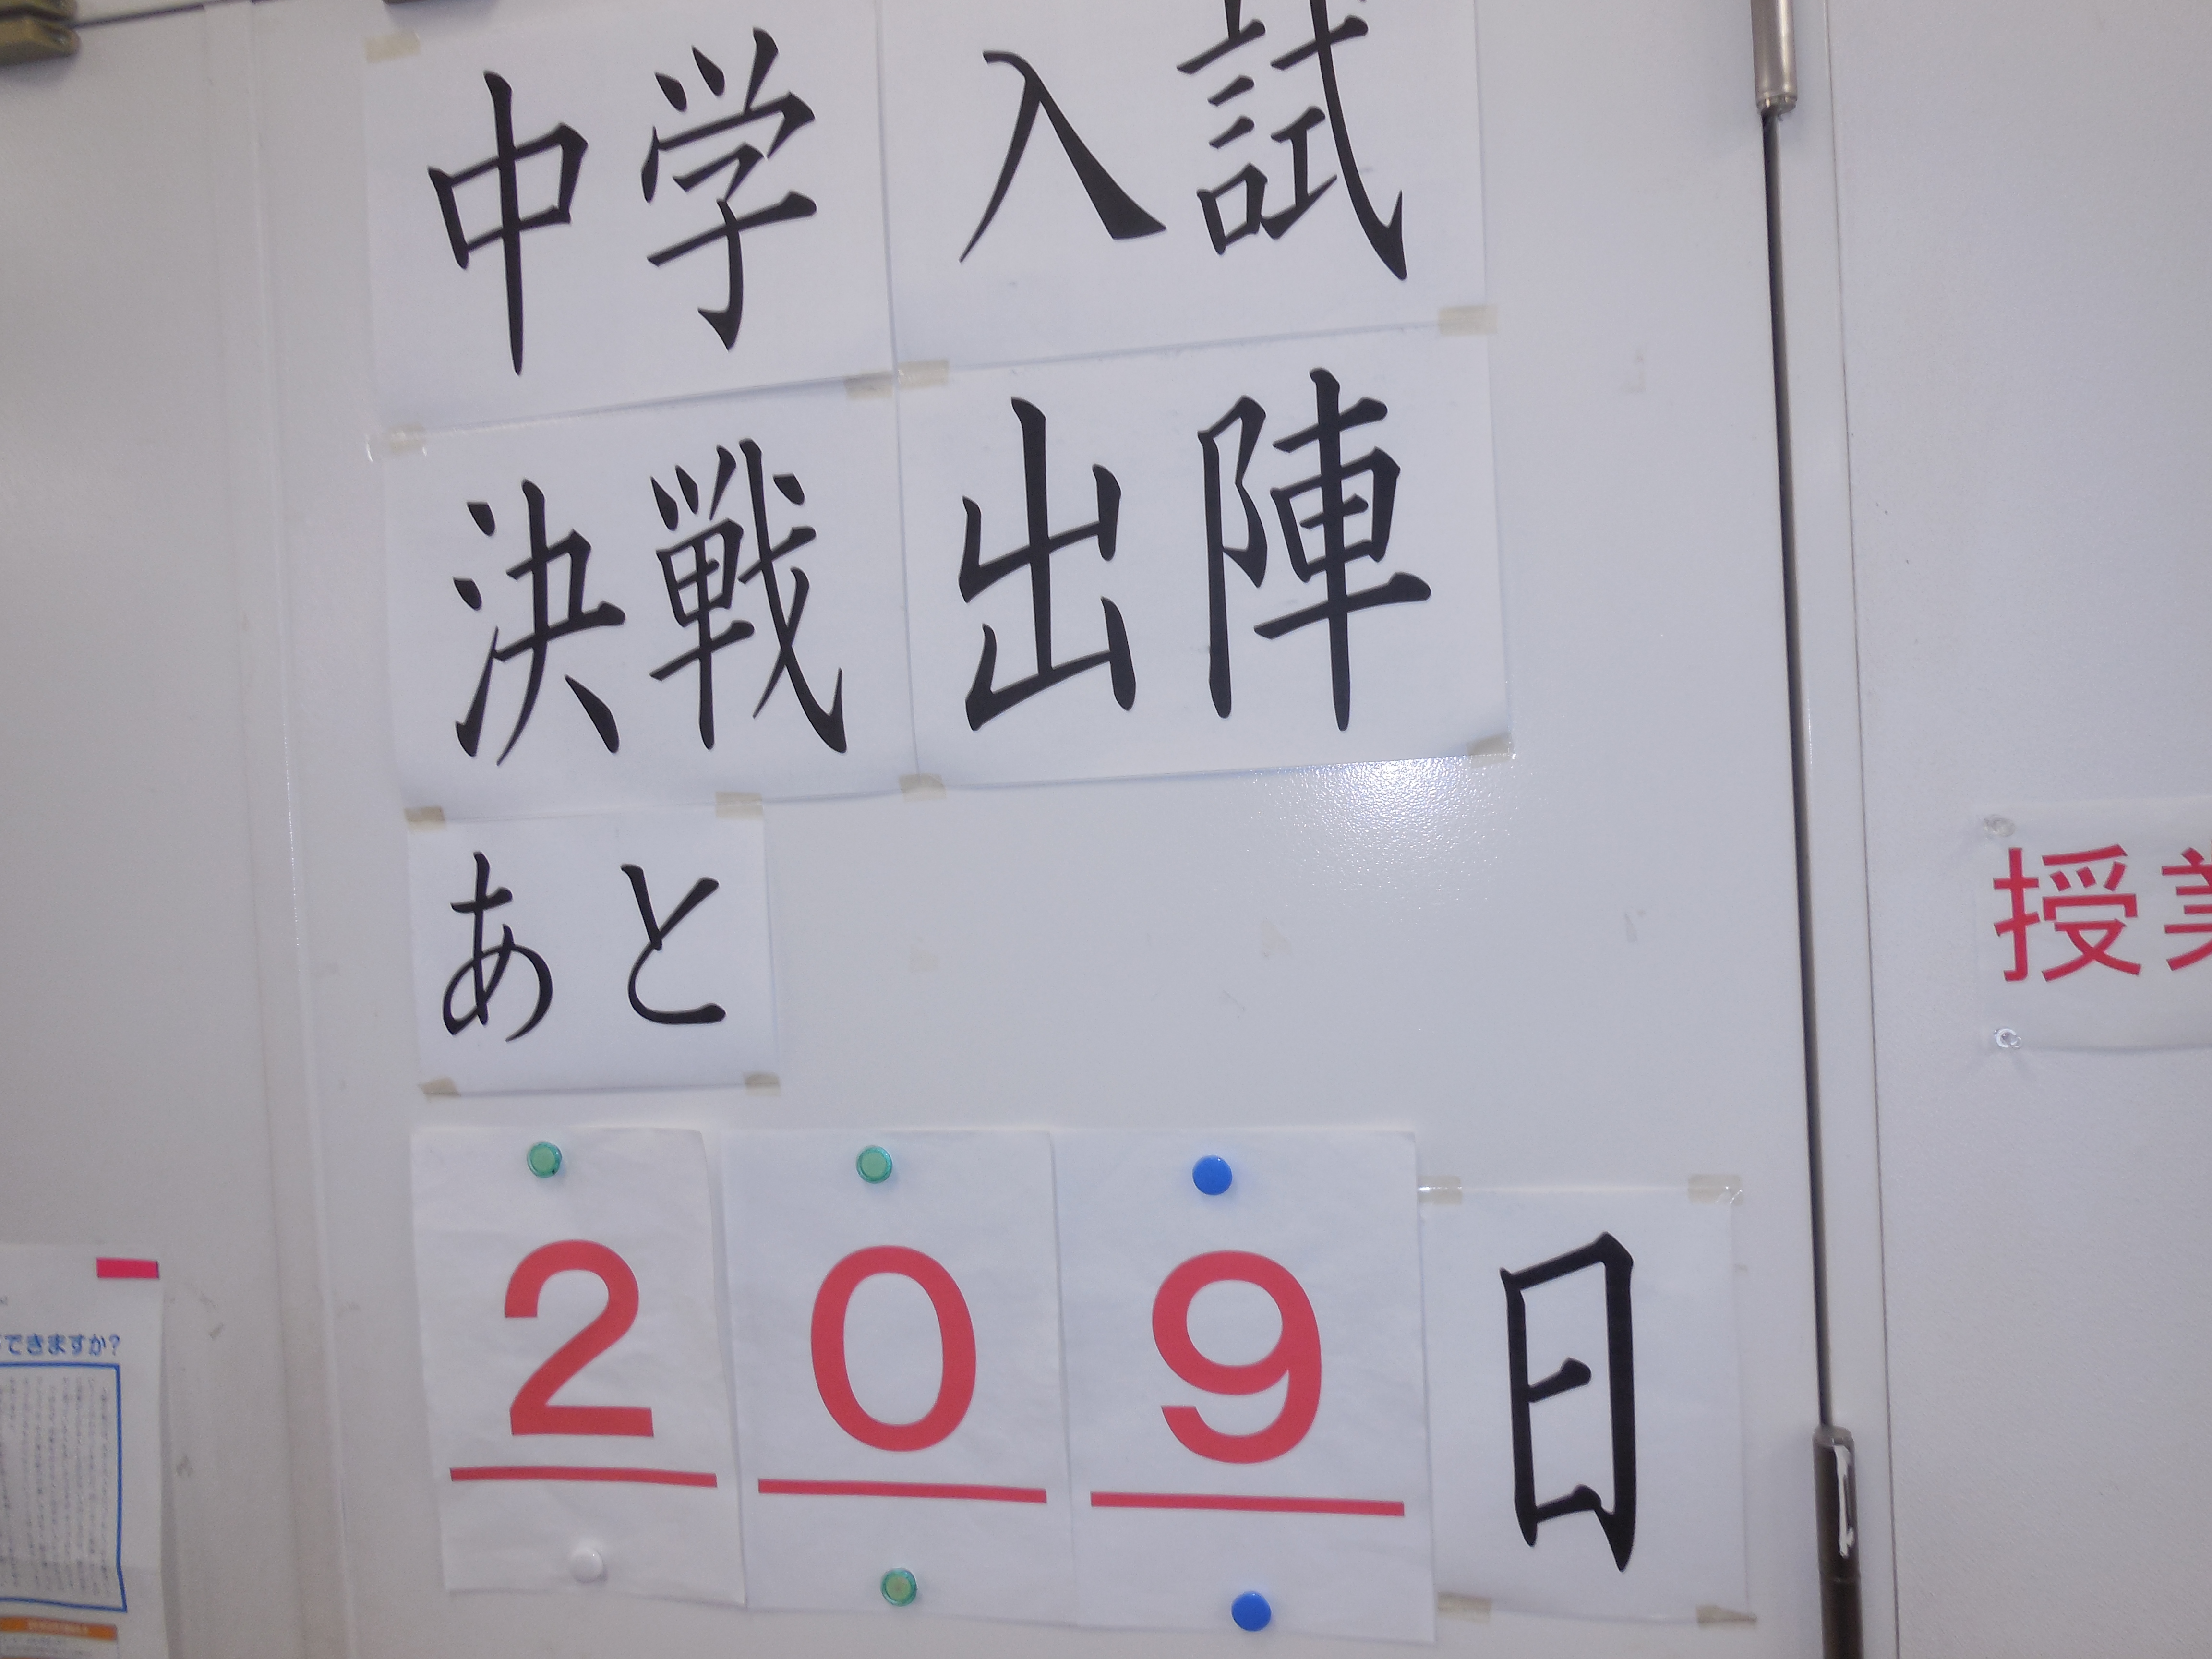 中学入試
決戦出陣
あと
209日
授業
できますか?